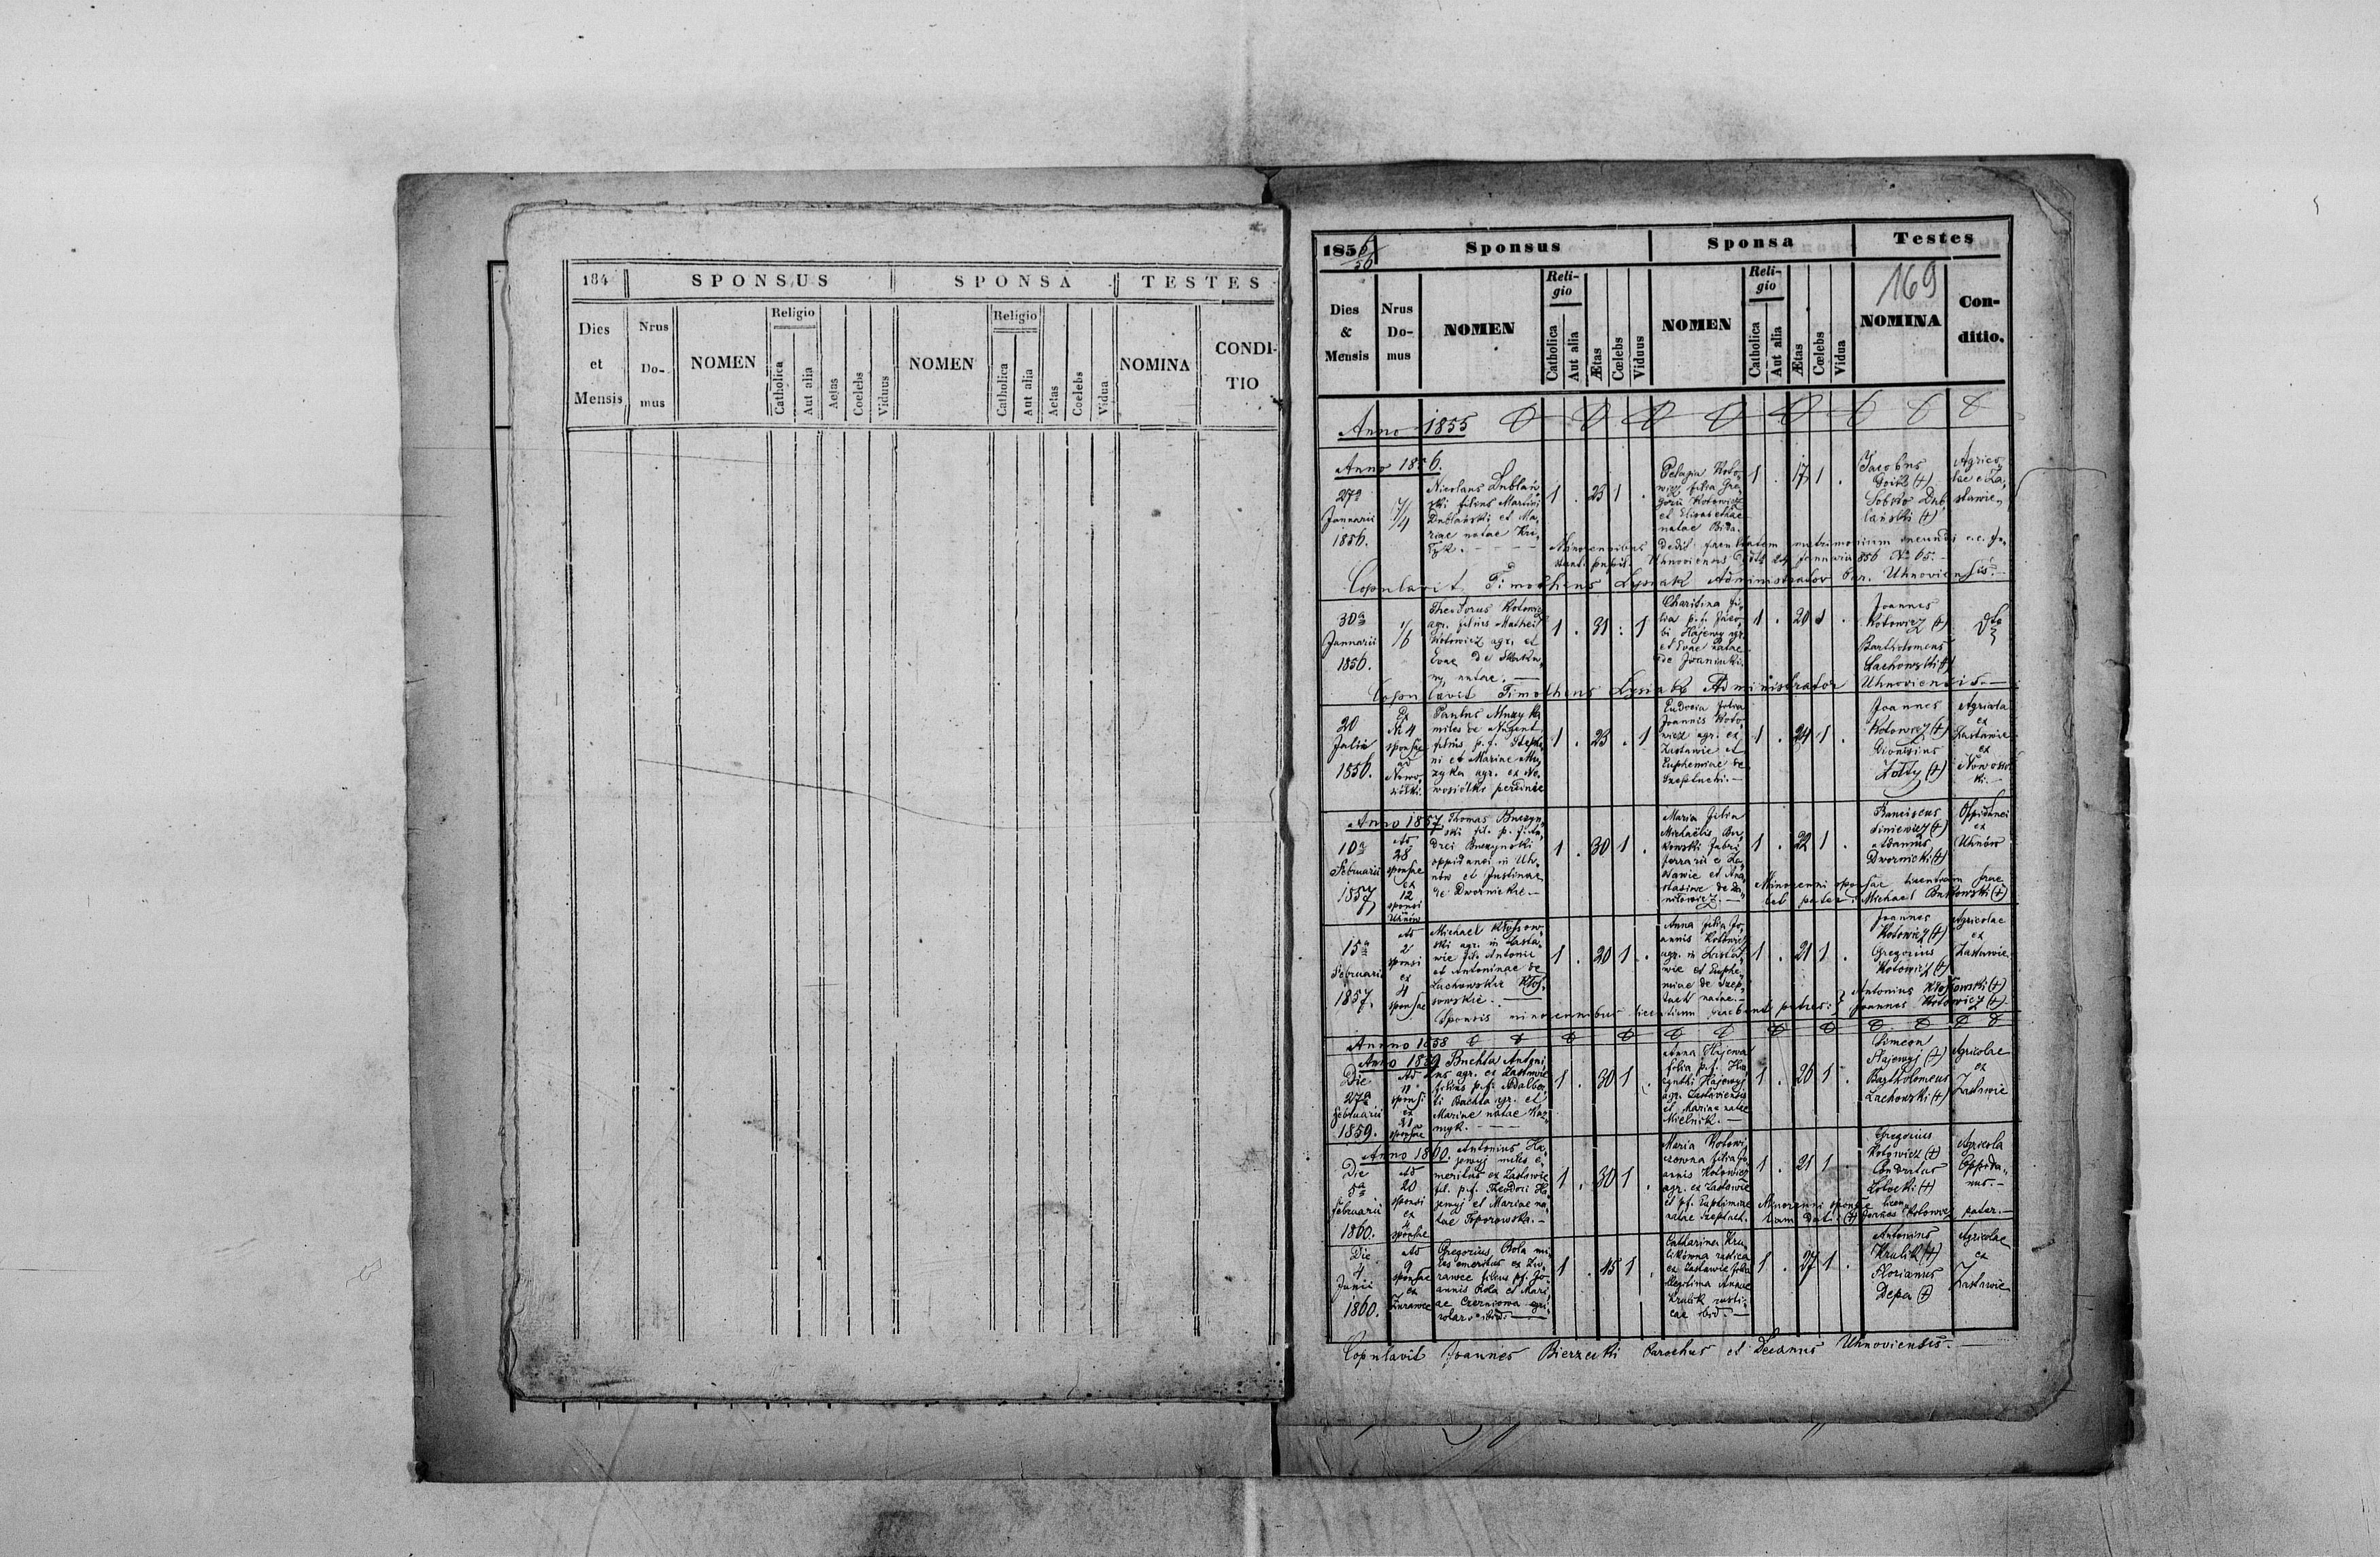 184 SPONSUS SPONSA TESTES
Dies et Mensis
Nrus Do- mus
NOMEN
Religio
Catholica
Aut alia
Aetas
Coelebs
Viduus
NOMEN
Religio
Catholica
Aut alia
Aetas
Coelebs
Vidua
NOMINA
CONDI-
TIO
185 6/56 Sponsus Sponsa Testes
169
Dies & Mensis
Nrus Do- mus
NOMEN
Reli-
gio
Catholica
Aut alia
Ætas
Cœlebs
Viduus
NOMEN
Reli-
gio
Catholica
Aut alia
Ætas
Cœlebs
Vidua
NOMINA
Con-
ditio.
Anno 1855
Anno 1856.
27a
Januarii
1856.
Nicolaus Dublań
ski filius Martini
Dublański et Ma,
riae natae
1 . 23 1 .
Pelagia Koto,
wicz filia Gre,
gorii Kotowicz
et Elisabethae
natae
1 . 17 1 .
Jacobus
(+)
Dub
lański (+)
Agrico
lae e Za,
stawie
Minorennibus dedit facultatem matrimonium ineundi
Uhnoviensis 24 Januarii 856 No 65.
Copulavit Timotheus Lysiak Administrator Uhnoviensis.
30a
Januarii
1856.
Theodorus Kotowicz
agr. filius Mathei
Kotowicz agr. et
Evae de
natae.
1 . 31 : 1
Charitina fi,
lia p. f. Jaco,
bi Hajewy agr.
et Evae natae
de
1 . 20 1 .
Joannes
Kotowicz (+)
Bartholomeus
Lachowski (+)
dto
Copulavit Timotheus Lysiak Administrator Uhnoviensis.
20
Julii
1856.
Ex
N 4
sponsae
ad
Nowo,
siółki.
Paulus Muzyka
miles de Nugent
filius p. f. Stepha
ni et Mariae Mu
zyka agr. ex No,
wosiółki
1 . 23 . 1
Eudocia filia
Joannis Koto,
wicz agr. ex
Zastawie et
Euphemiae de
1 . 24 1 .
Joannes
Kotowicz (+)
Dionisius
Żółty (+)
Agricola
ex
Zastawie
ex
Nowosiół
ki.
Anno 1857
10a
Februarii
1857
Ad
28
sponsae
ex
12
sponsi
Uhnów
Thomas Buczyń
ski fil. p. f. An,
drei Buczyński
oppidanei in Uh,
nów et Justinae
de Dwornickie
1 . 30 1 .
Maria filia
Michaëlis Bu,
kowski fabri
ferrarii e Za,
stawie et Ana
stasiae de Da
niłowicz.
1 . 22 1 .
Franciscus
Siniewicz (+)
Dwornicki (+)
Oppidanei
ex
Uhnów
Minorenni sponsae licentiam prae
bet pater: Michael Bukowski (+)
15a
Februarii
1857.
Ad
2
sponsi
ex
4
sponsae
Michael Kłossow,
ski agr. in Zasta,
wie fil. Antonii
et Antoninae de
Lachowskie Kłos,
sowskie.
1 . 20 1 .
Anna filia Jo,
annis Kotowicz
agr. in Zasta,
wie et Euphe,
miae de Szep,
natae.
1 . 21 1 .
Joannes
Kotowicz (+)
Gregorius
Kotowicz (+)
Agricolae
ex
Zastawie
Sponsis minorennibus licentiam praebent patres: Antonius Kłossowski (+)
Joannes Kotowicz (+)
Anno 1858
Anno 1859
Die
27a
Februarii
1859.
Ad
11
sponsi
ex
21
sponsae
Buchta Antoni
us agr. ex Zastawie
filius p. f. Adalber
ti Buchta agr. et
Mariae natae Kuz
myk.
1 . 30 1 .
Anna Hajewa
filia p. f. Hia
cynthi Hajewyj
agr. Zastaviensis
et Mariae natae
Mielnik.
1 . 26 1 .
Simeon
Hajewyj (+)
Bartholomeus
Lachowski (+)
Agricolae
ex
Zastawie
Anno 1860.
Die
5a
Februarii
1860.
Ad
20
sponsi
ex
4
sponsae
Antonius Ha,
jewyj miles e,
meritus ex Zastawie
fil. p. f. Theodori Ha
jewyj et Mariae na
tae Toporowska.
1 . 30 1 .
Maria Kotowi,
czowna filia Jo,
annis Kotowicz
agr. ex Zastawie
et pf. Euphimiae
natae
1 . 21 1 .
Gregorius
Kotowicz (+)
Conratus
(+)
Agricola
Oppida,
nus.
Minorenni sponsae licen,
tiam dat (+) Joannes Kotowicz pater.
Die
4
Junii
1860.
Ad
9
sponsae
ex
Żurawce
Gregorius Rola mi
les emeritus ex Żu,
rawce filius pf. Jo,
annis Rola et Mari
ae Czerniowa agri
colar. ibid.
1 . 45 1 .
Catharina Kru
likówna rustica
ex Zastawie filia
illegitima Annae
Krulik rusti,
cae ibid.
1 . 27 1 .
Antonius
Krulik (+)
Florianus
Depa (+)
Agricolae
ex
Zastawie
Copulavit Joannes Bierzecki Parochus et Decanus Uhnoviensis.